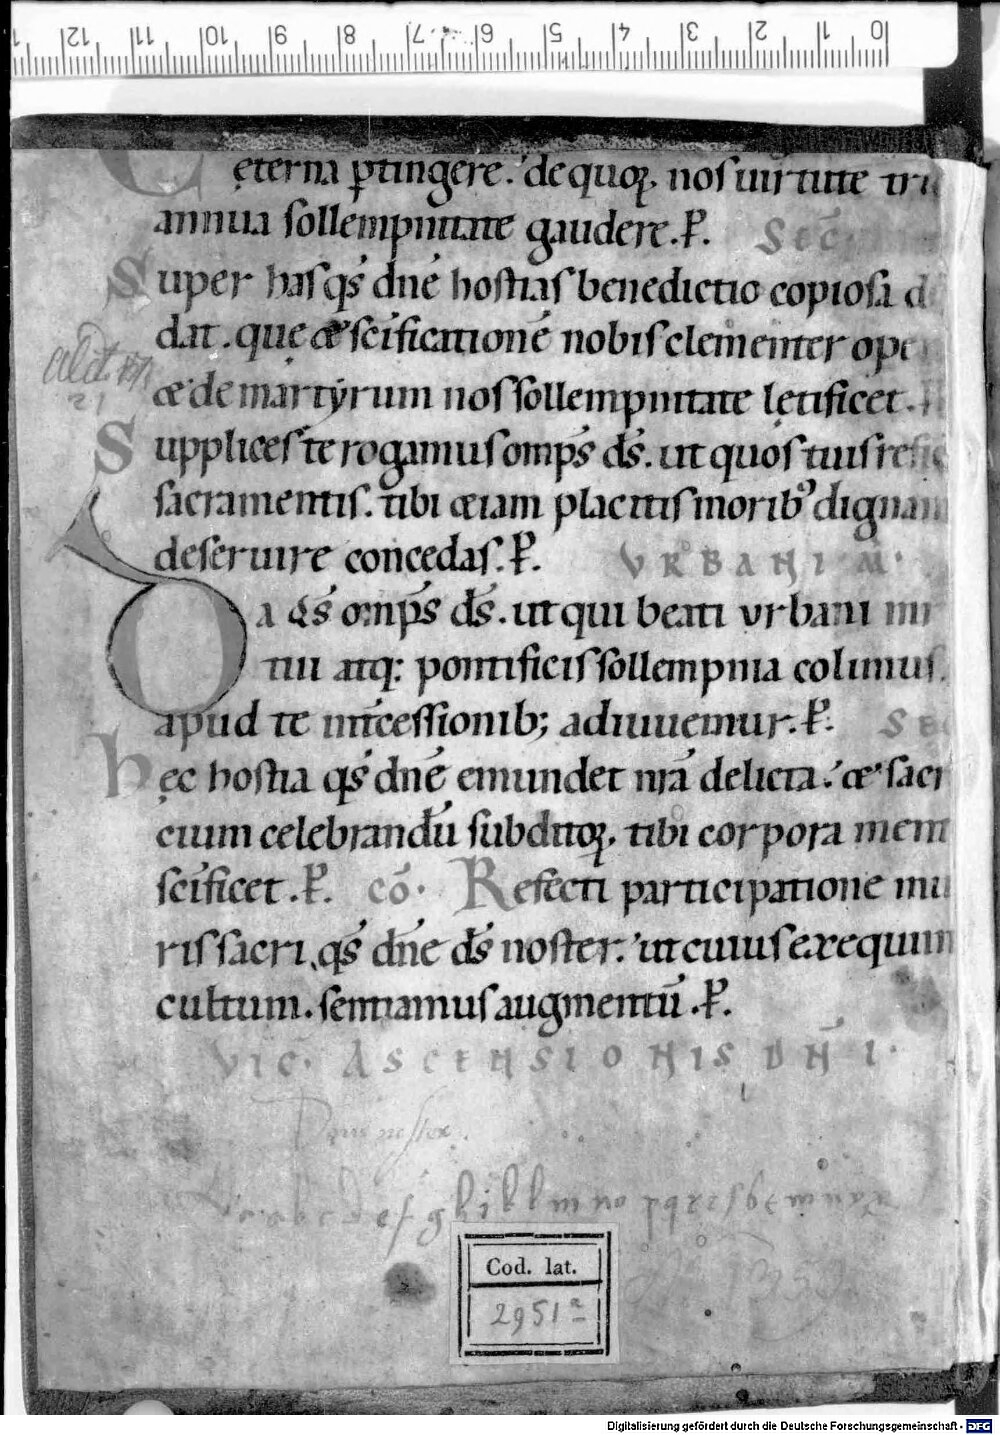 12 11 10 9 8 7 6 5 4 3 2 1 0
ęterna ptingere. de quoꝝ. nos uirtute tri
annua sollempnitate gaudere. P̄. Sec̄
Super has qs̄ dn̄e hostias benedictio copiosa
dat. quę & sc̄ificationē nobis clementer ope
& de martyrum nos sollempnitate lętificet.
Supplices te rogamus omps̄ ds̄. ut quos tuis refic
sacramentis. tibi &iam placitis moribꝰ dignan
deseruire concedas. P̄. VRBANI M.
Da qs̄ omps̄ ds̄. ut qui beati vrbani
tui atq: pontificis sollempnia colimus.
apud te int̄cessionib; adiuuemur. P̄. Se
hęc hostia qs̄ dn̄e emundet nr̄a delicta. & sacri
cium celebrandū subditoꝝ. tibi corpora ment
sc̄ificet. P̄. cō. Refecti participatione mu
ris sacri, qs̄ dn̄e ds̄ noster. ut cuius exequim
cultum. sentiamus augmentū. P̄.
VIC̄. ASCENSIONIS DN̄I.
a b c d e f g h i k l m n o p q r
Cod. lat.
2951ª
Digitalisierung gefördert durch die Deutsche Forschungsgemeinschaft - DFG